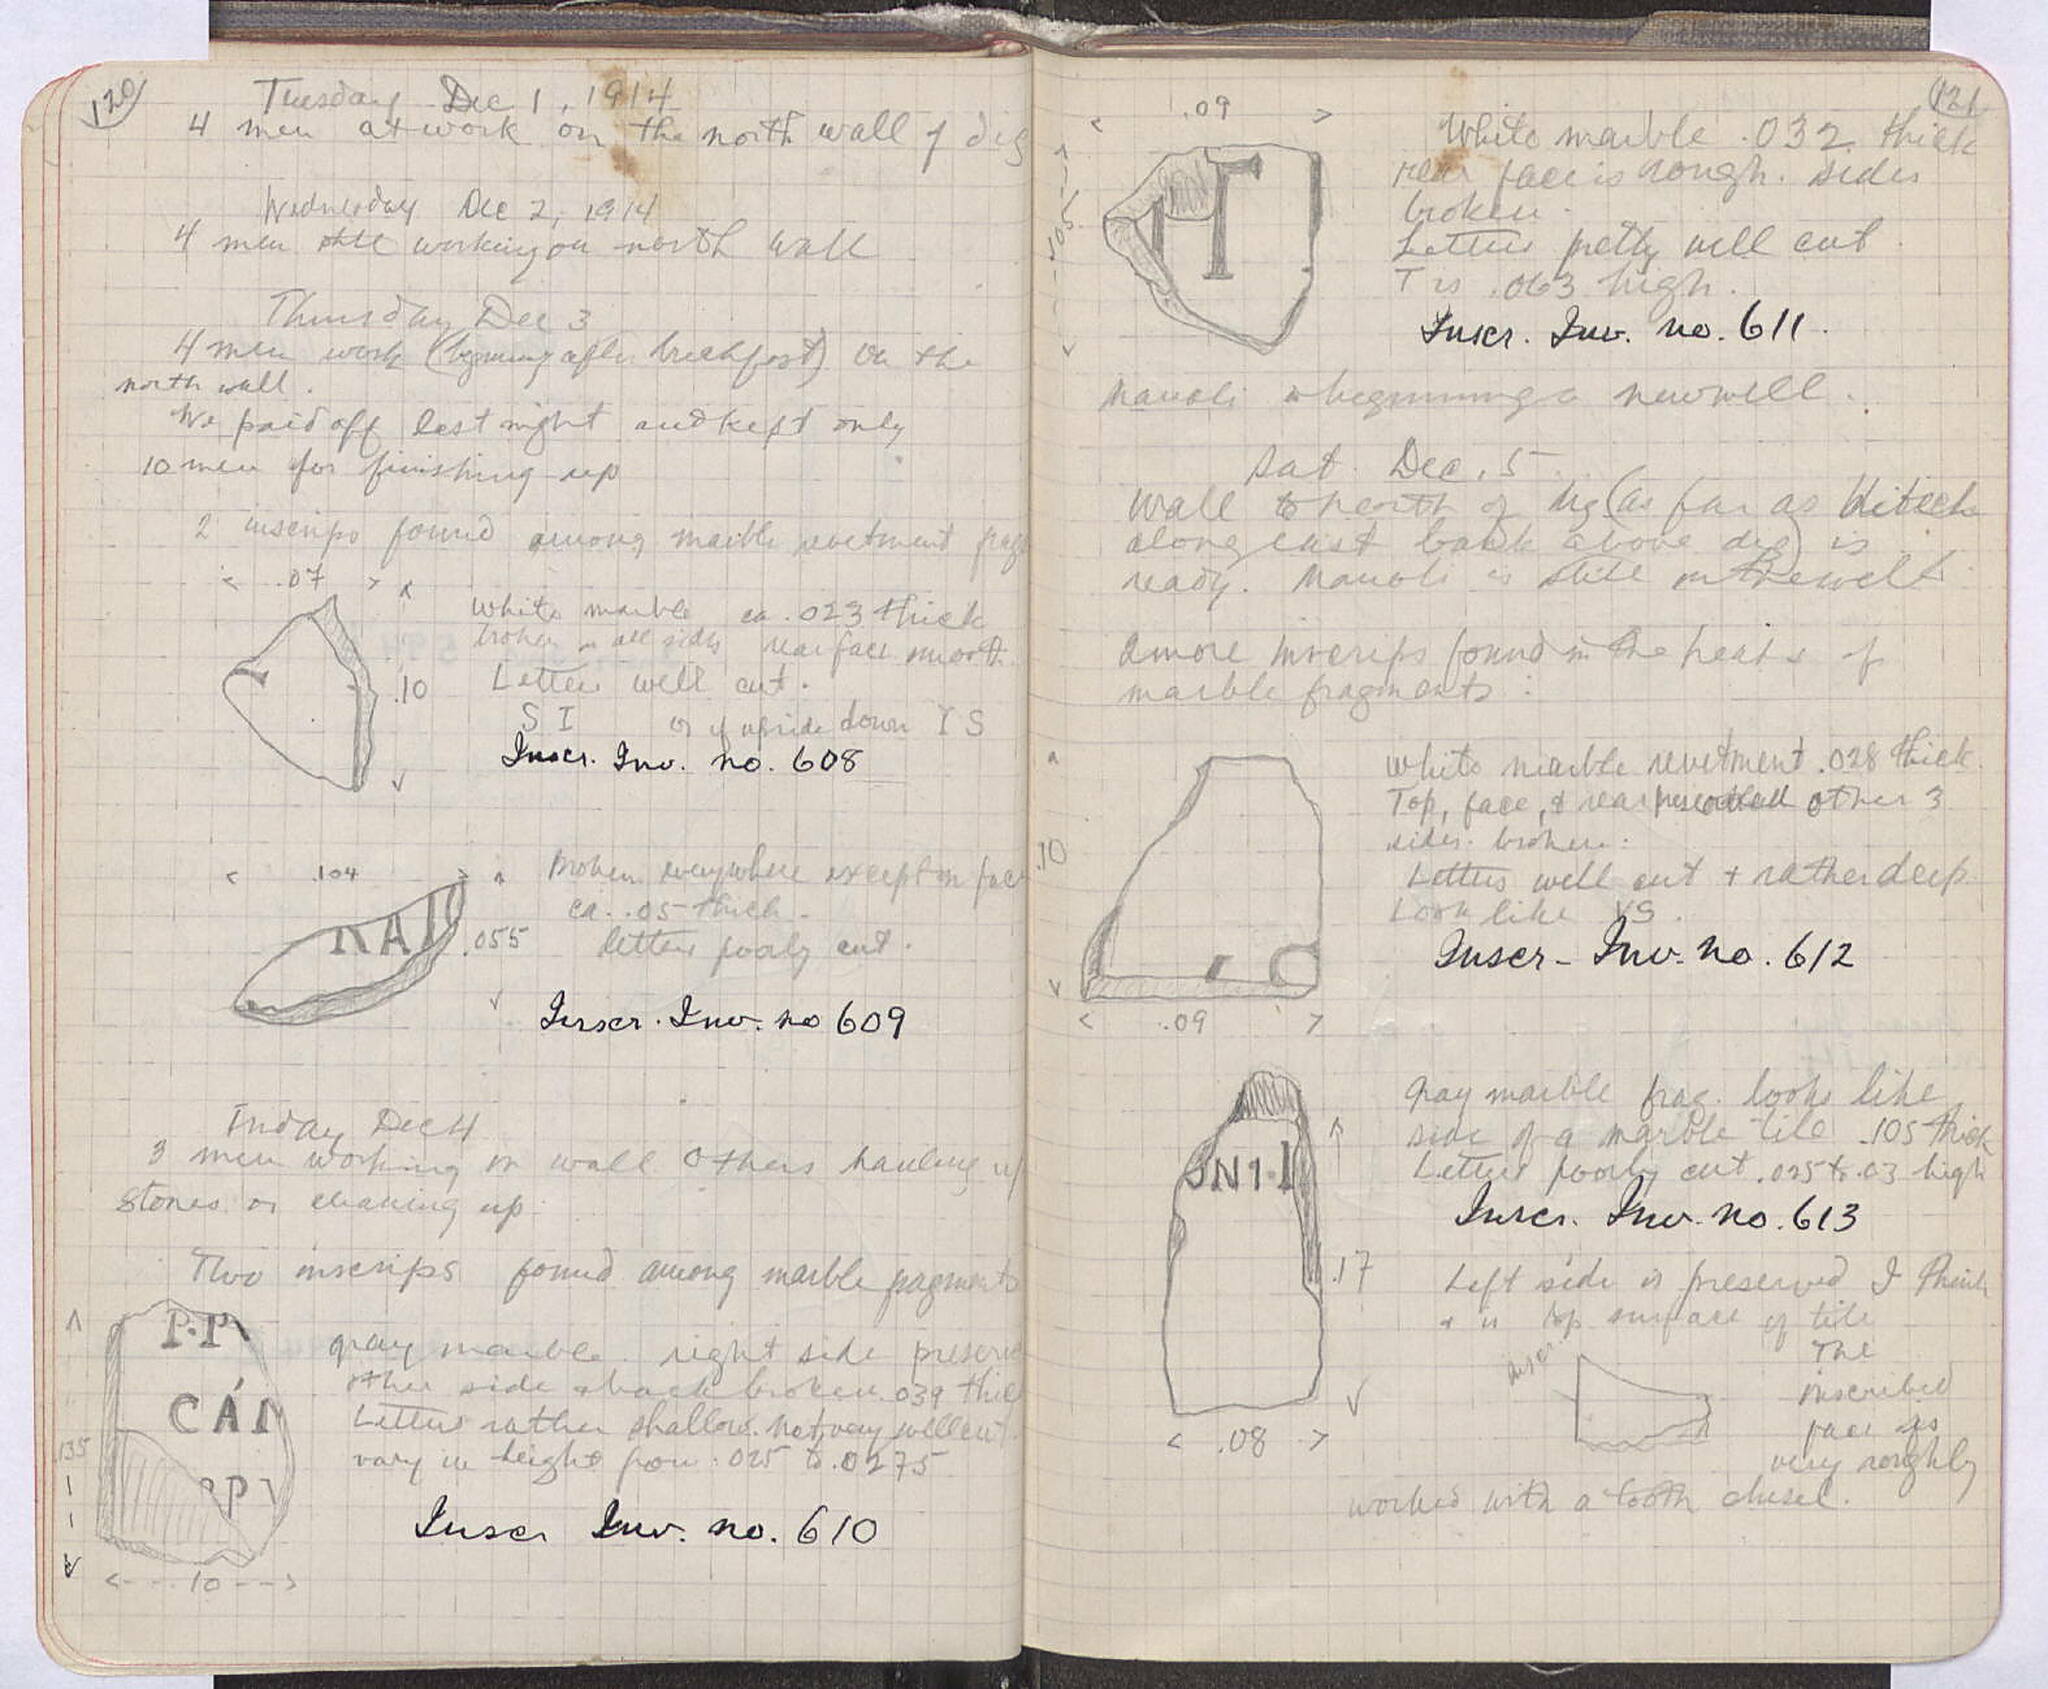 120
Tuesday Dec 1, 1914
4 men at work on the north wall of dig
Wednesday Dec 2, 1914
4 men still working on north wall
Thursday Dec 3
4 men work (beginning after breakfast) on the
north wall.
We paid off last night and kept only
10 men for finishing up
2 inscrips found among marble revetment frag
.07
.10
White marble ca .023 thick
broken on all sides rear face smooth
Letters well cut.
S I or if upside down I S
Inscr. Inv. no. 608
.104
.055
RAI
Broken everywhere except on face
ca. .05 thick.
letters poorly cut.
Inscr. Inv. no 609
Friday Dec 4
3 men working on wall others hauling up
stones or cleaning up.
Two inscrips found among marble fragments
P·P
CÁI
PP
.135
.10
gray marble. right side preserve
other side & back broken .039 thic
Letters rather shallow not very well cut
vary in height from .025 to .0275
Inscr Inv. no. 610
121
.09
.105
T
White marble .032 thick
rear face is rough. sides
broken.
Letters pretty well cut.
T is .063 high.
Inscr. Inv. no. 611.
Manoli is beginning a new well.
Sat. Dec. 5
Wall to north of dig (as far as ditch
along east bank above dig) is
ready. Manoli is still in the well
2 more inscrips found in the heap of
marble fragments:
.10
.09
White marble revetment .028 thick.
Top, face, & rear preserved all other 3
sides broken.
Letters well cut & rather deep.
Look like VS.
Inscr- Inv. no. 612
ONI·I
.17
.08
Gray marble frag. looks like
side of a marble tile .105 thick
Letters poorly cut .025 to .03 high
Inscr. Inv. no. 613
Left side is preserved I think
& is top surface of tile
inscr.
The
inscribed
face is
very roughly
worked with a tooth chisel.